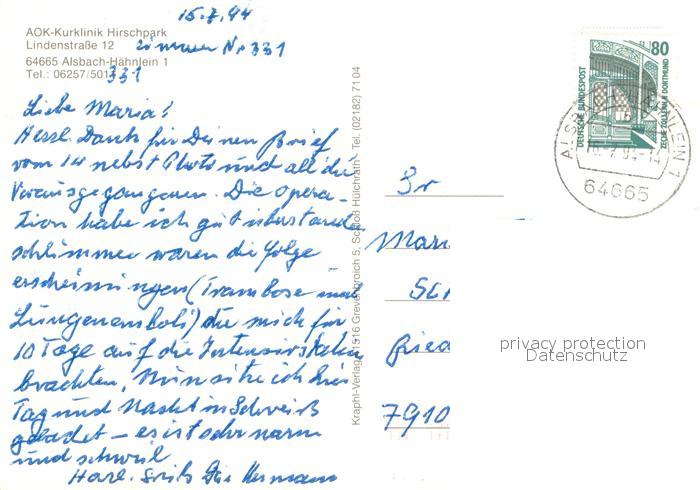 15.7.94
AOK-Kurklinik Hirschpark
Lindenstraße 12
Zimmer Nr 331
64665 Alsbach-Hähnlein 1
Tel.: 06257/501
331
Liebe Maria!
Herzl. Dank für Deinen Brief
vom 14 nebst Photo und all die
Vorausgegangenen. Die Opera-
tion habe ich gut überstanden
schlimmer waren die Folge
erscheinungen (Trombose und
Lungenemboli) die mich für
10 Tage auf die Intensivstation
brachten, Nun sitze ich hier
Tag und Nacht in Schweiß
gebadet – es ist sehr warm
und schwül
Herzl. Grüß Dein Hermann
Krapht-Verlag, 41516 Grevenbroich 5, Schloß Hülchrath · Tel. (02182) 71 04
80
DEUTSCHE BUNDESPOST
ZECHE ZOLLERN II DORTMUND
64665
Mari
Sch
Fried
7910
privacy protection
Datenschutz